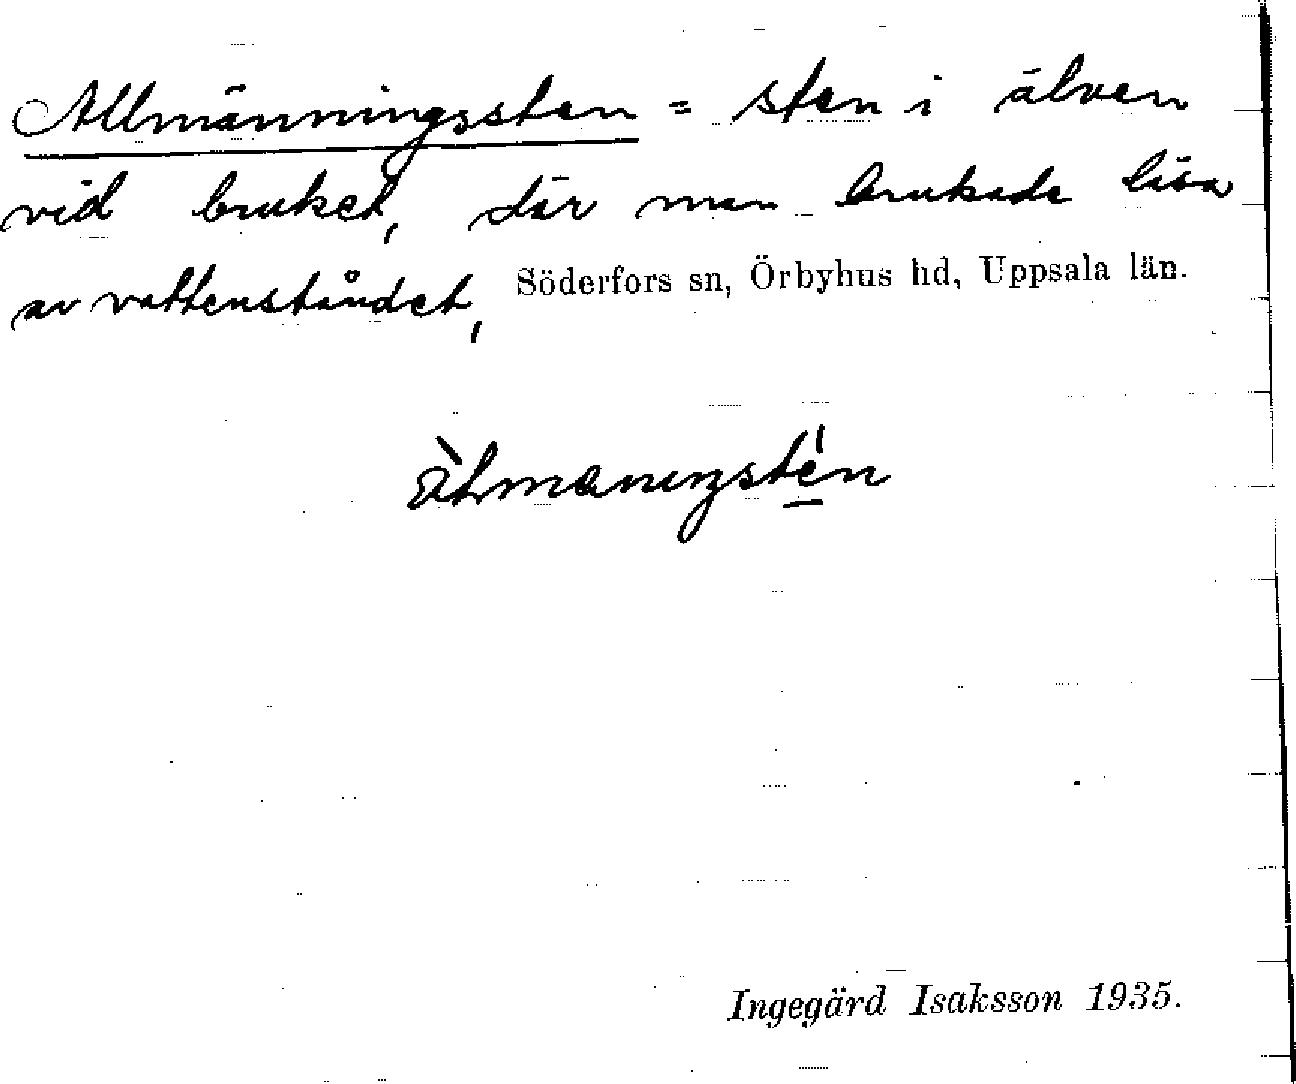 Allmänningssten = sten i älven
vid bruket, där man brukade läsa
av vattenståndet, Söderfors sn, Örbyhus hd, Uppsala län.
Ingegärd Isaksson 1935.